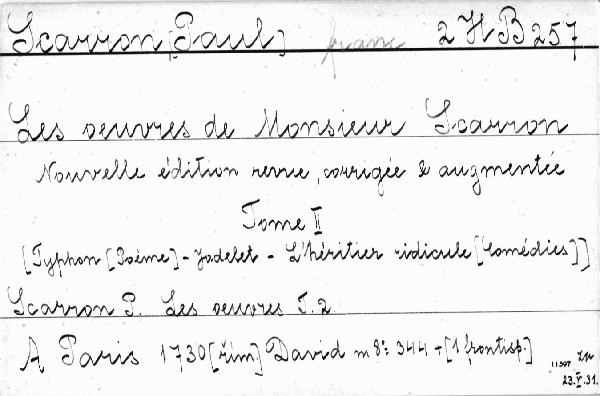 Scarron [Paul] franc 2 H B 257
Les oeuvres de Monsieur Scarron
Nouvelle édition revue, corrigée & augmentée
Tome II
[Typhon [Poème] - Jodelet - L'héritier ridicule [Comédies]]
Scarron P. Les oeuvres T. 2
A Paris 1730 [rím] David m 8: 344 + [1 frontisp.]
11597
23.V.31.